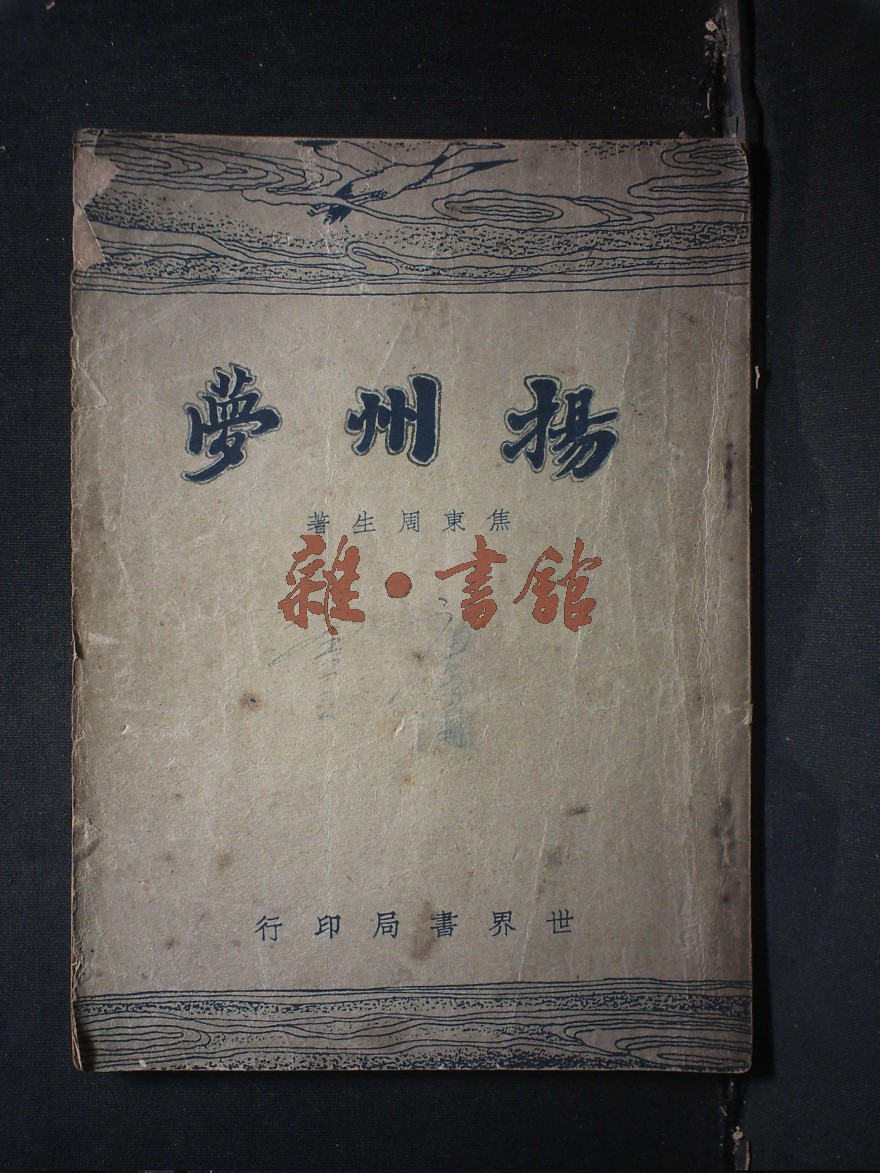 揚州夢
焦東周生著
雜·書舘
世界書局印行